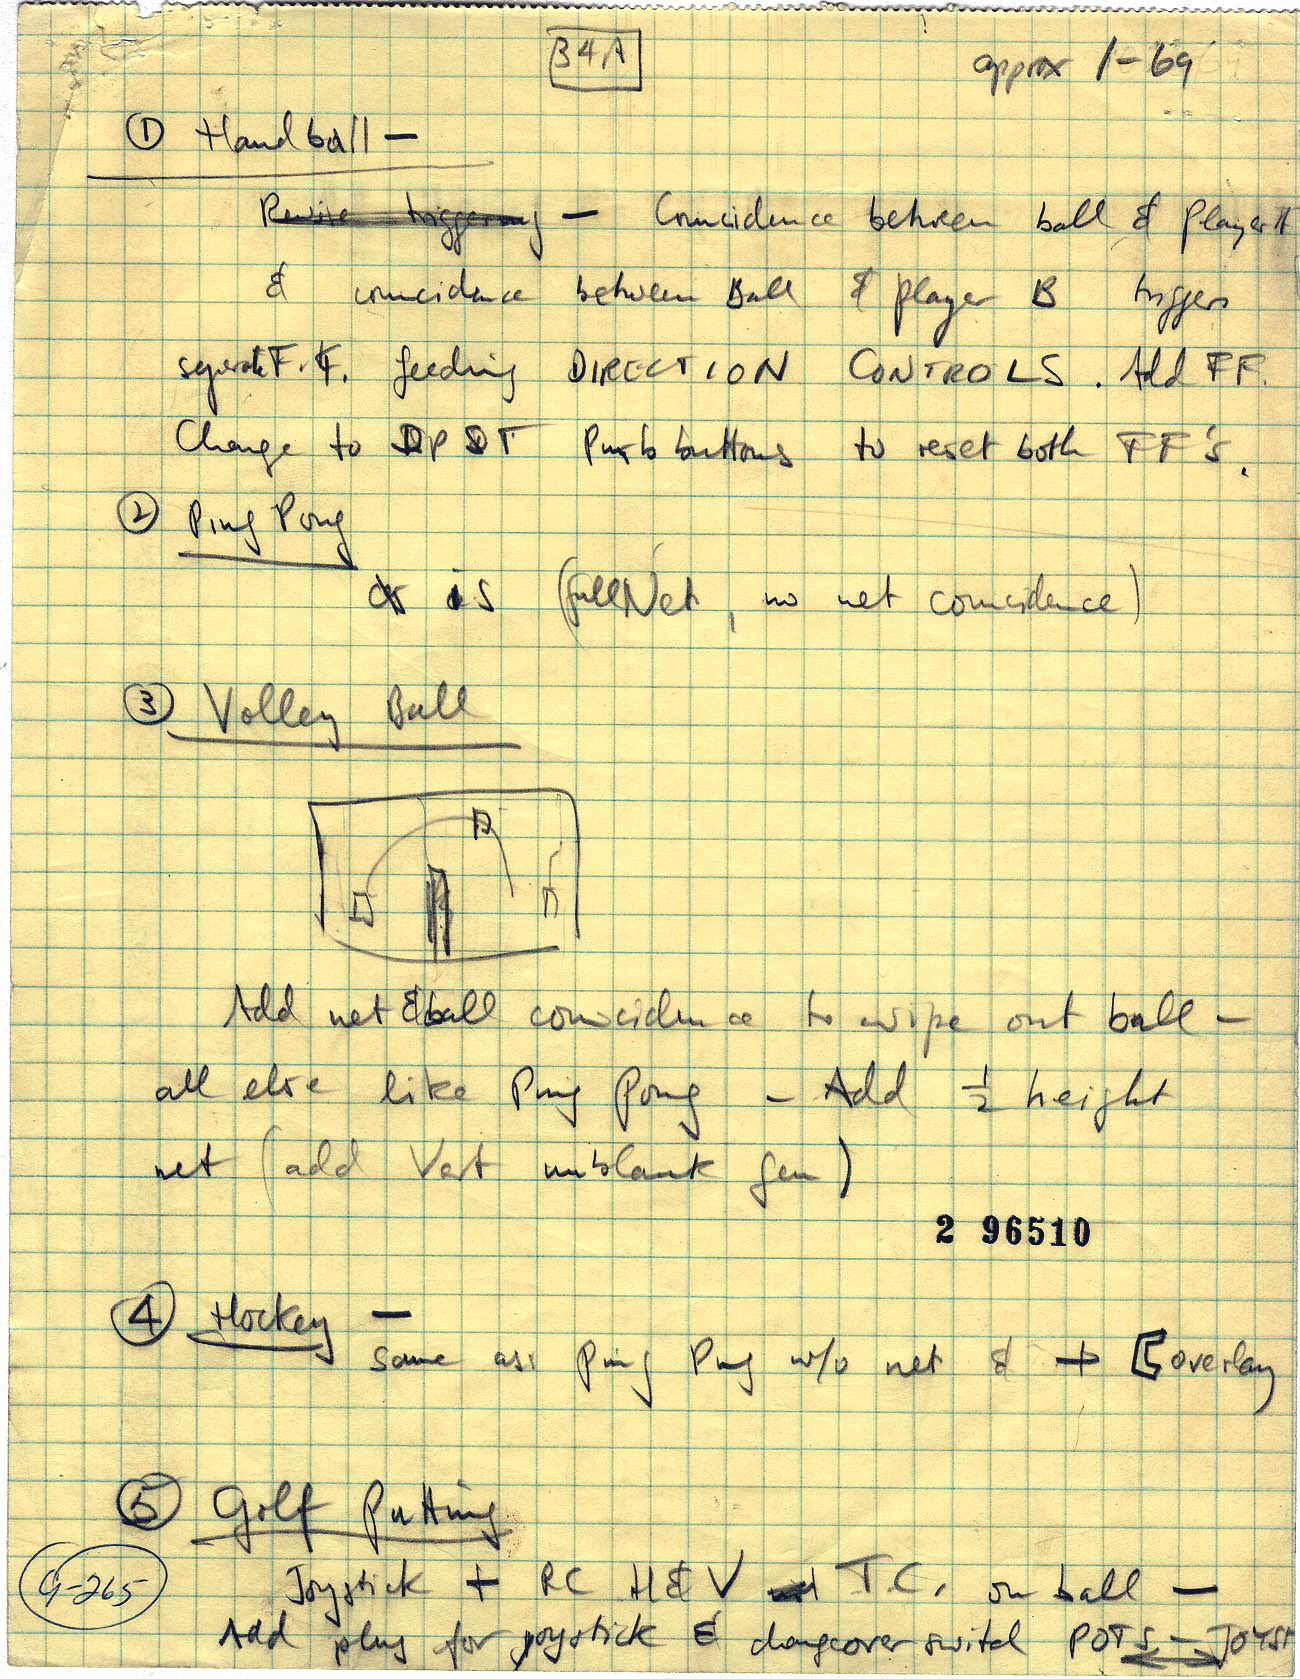 34A
approx 1-69
① Handball —
Rewire triggering — Coincidence between ball & Player A
& coincidence between Ball & player B triggers
separate F.F. feeding DIRECTION CONTROLS. Add FF.
Change to DPDT Pushbuttons to reset both FF's.
② Ping Pong
as is (full Net, no net coincidence)
③ Volley Ball
Add net & ball coincidence to wipe out ball —
all else like Ping Pong — Add ½ height
net (add Vert unblank gen)
2 96510
④ Hockey —
same as Ping Pong w/o net & + overlay
⑤ Golf Putting
G-265
Joystick + RC H & V T.C. on ball —
Add plug for joystick & changeover switch POTS ↔ JOYST